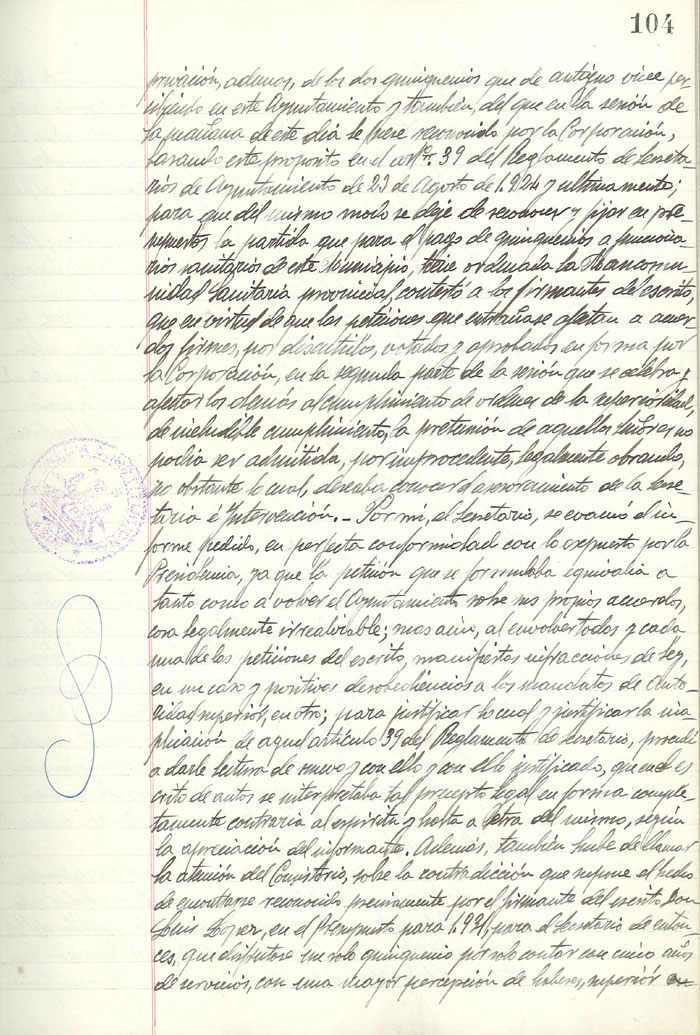 104
privación, ademas, de los dos quinquenios que de antiguo vice per-
cibiendo en este Ayuntamiento y tambien, del que en la sesión de
la mañana de este dia le fuese reconocido por la Corporación,
basando este proposito en el artº. 39 del Reglamento de Secreta-
rios de Ayuntamiento de 23 de Agosto de 1.924 y ultimamente;
para que del mismo modo se deje de reconocer y fijar en pre-
supuestos la partida que para el pago de quinquenios a funciona-
rios sanitarios de este Municipio, tiene ordenada la Mancomu-
nidad Sanitaria provincial, contestó a los firmantes del escrito,
que en virtud de que las peticiones que entrañase afectan a acuer-
dos firmes, por discutidos, votados y aprobados en forma por
la Corporación, en la segunda parte de la sesión que se celebra y
afectar los demás al cumplimiento de ordenes de la superioridad,
de ineludible cumplimiento, la pretensión de aquellos Señores no
podia ser admitida, por improcedente, legalmente obrando,
no obstante lo cual, deseaba conocer el asesoramiento de la Secre-
taria é Intervención. - Por mi, el Secretario, se evacuó el in-
forme pedido, en perfecta conformidad con lo expuesto por la
Presidencia, ya que la petición que se formulaba equivalia a
tanto como a volver el Ayuntamiento sobre sus propios acuerdos,
cosa legalmente irrealizable; mas aún, al envolver todos y cada
una de las peticiones del escrito, manifiestas infracciones de Ley,
en un caso y positivas desobediencias a los mandatos de Auto-
ridad superior, en otro; para justificar lo cual y justificar la ina-
plicación de aquel artículo 39 del Reglamento de Secretario, procedió
a darle lectura de nuevo y con ello y con ello justificado, que en el es-
crito de autos se interpretaba tal precepto legal en forma comple-
tamente contraria al espiritu y hasta a letra del mismo, según
la apreciación del informante. Además, también hube de llamar
la atención del Consistorio, sobre la contradicción que supone el hecho
de encontrarse reconocido precisamente por el firmante del escrito Don
Luis Lopez, en el Presupuesto para 1.931, para el Secretario de enton-
ces, que disfrutase un solo quinquenio por solo contar con cinco años
de servicios, con una mayor percepción de haberes, superiór